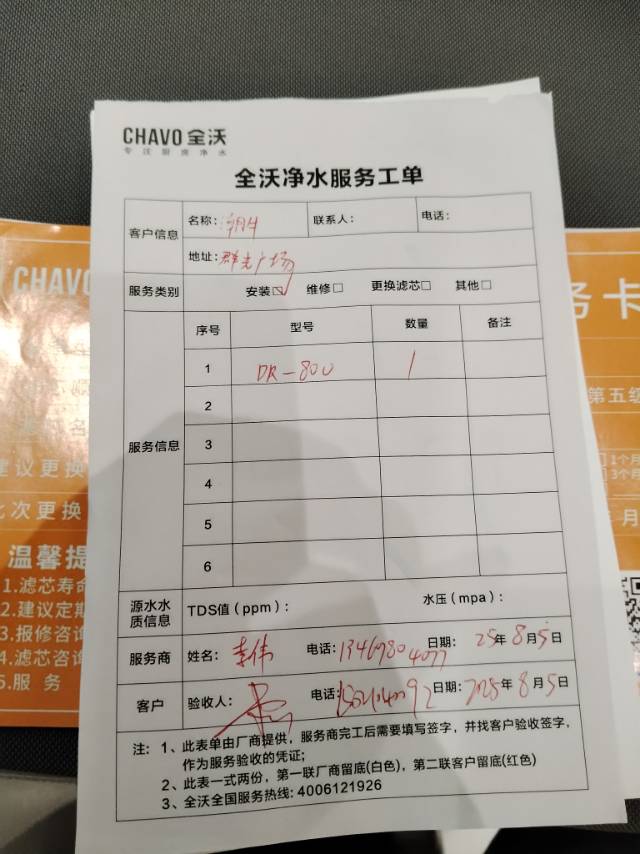 CHAVO 全沃
专注厨房净水
全沃净水服务工单
客户信息 名称: 联系人: 电话:
地址: 群光广场
服务类别 安装☑ 维修□ 更换滤芯□ 其他□
服务信息 序号 型号 数量 备注
1 DR-800 1
2
3
4
5
6
源水水质信息 TDS值(ppm): 水压(mpa):
服务商 姓名: 李伟 电话: 日期: 25年8月5日
客户 验收人: 电话: 日期: 2025年8月5日
注: 1、此表单由厂商提供，服务商完工后需要填写签字，并找客户验收签字，
作为服务验收的凭证;
2、此表一式两份，第一联厂商留底(白色)，第二联客户留底(红色)
3、全沃全国服务热线: 4006121926
CHAVO
建议更换
此次更换
温馨提
1.滤芯寿命
2.建议定期
3.报修咨询
4.滤芯咨询
5.服 务
务卡
第五级
1个月
3个月
月